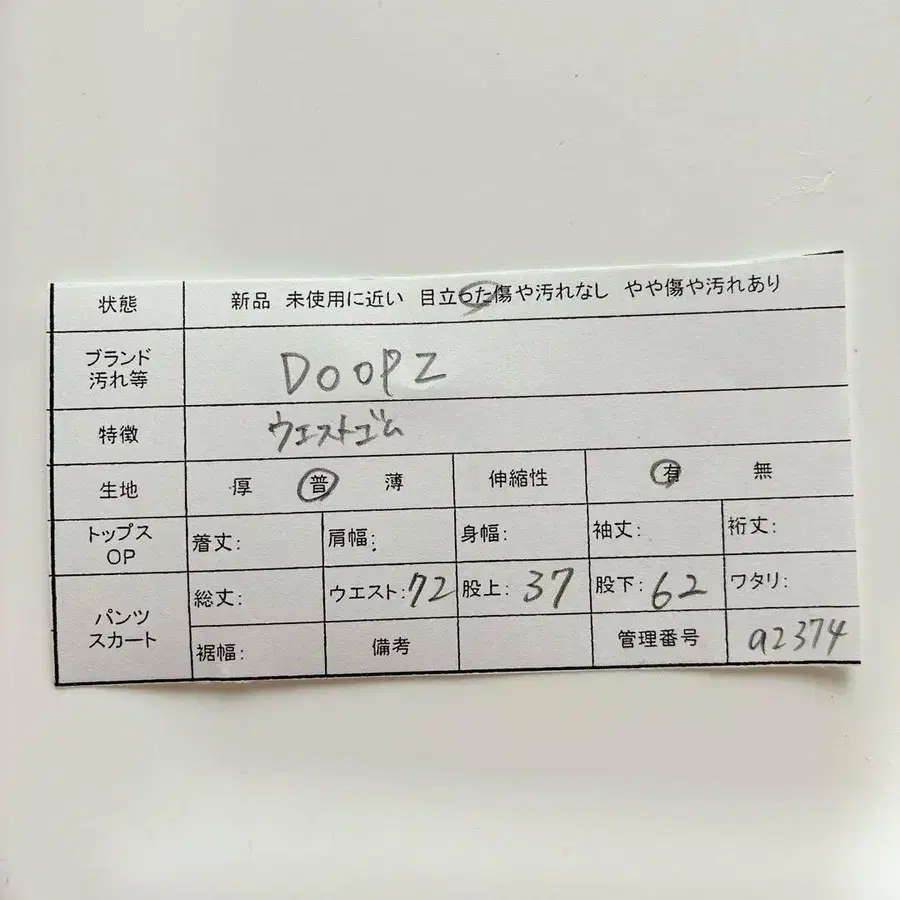 状態 新品 未使用に近い 目立った傷や汚れなし やや傷や汚れあり
ブランド
汚れ等
DOOPZ
特徴 ウエストゴム
生地 厚 普 薄 伸縮性 有 無
トップス
OP
着丈: 肩幅: 身幅: 袖丈: 裄丈:
パンツ
スカート
総丈: ウエスト:72 股上:37 股下:62 ワタリ:
裾幅: 備考 管理番号 a2374